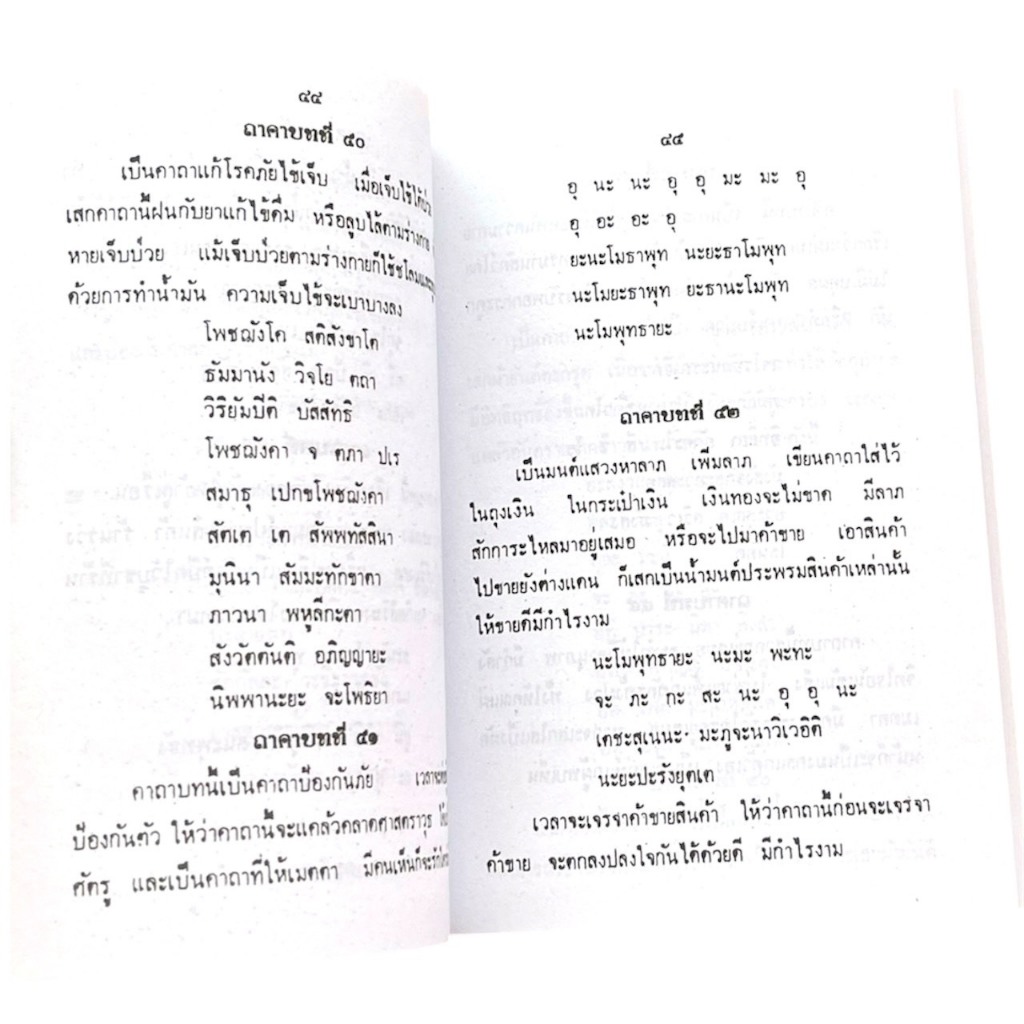 ๔๔
ถาคาบทที่ ๕๐
เป็นคาถาแก้โรคภัยไข้เจ็บ เมื่อเจ็บไข้ได้ป่วย
เสกคาถานี้ฝนกับยาแก้ไข้ดื่ม หรือลูบไล้ตามร่างกาย
หายเจ็บป่วย แม้เจ็บป่วยตามร่างกายก็ใช้ชโลมและ
ด้วยการทำน้ำมัน ความเจ็บไข้จะเบาบางลง
โพชฌังโค สติสังขาโต
ธัมมานัง วิจโย ตถา
วิริยัมปีติ ปัสสัทธิ
โพชฌังคา จ ตภา ปเร
สมาธุ เปกขโพชฌังคา
สัตเต เต สัพพทัสสินา
มุนินา สัมมะทักขาตา
ภาวนา พหุลีกะตา
สังวัตตันติ อภิญญายะ
นิพพานะยะ จะโพธยา
ถาคาบทที่ ๕๑
คาถาบทนี้เป็นคาถาป้องกันภัย
ป้องกันตัว ให้ว่าคาถานี้จะแคล้วคลาดศาสตราวุธ
ศัตรู และเป็นคาถาที่ให้เมตตา มีคนเห็นก็จะรัก
๔๕
อุ นะ นะ อุ อุ มะ มะ อุ
อุ อะ อะ อุ
ยะนะโมธาพุท นะยะธาโมพุท
นะโมยะธาพุท ยะธานะโมพุท
นะโมพุทธายะ
ถาคาบทที่ ๕๒
เป็นมนต์แสวงหาลาภ เพิ่มลาภ เขียนคาถาใส่ไว้
ในถุงเงิน ในกระเป๋าเงิน เงินทองจะไม่ขาด มีลาภ
สักการะไหลมาอยู่เสมอ หรือจะไปมาค้าขาย เอาสินค้า
ไปขายยังต่างแดน ก็เสกเป็นน้ำมนต์ประพรมสินค้าเหล่านั้น
ให้ขายดีมีกำไรงาม
นะโมพุทธายะ นะมะ พะทะ
จะ ภะ กะ สะ นะ อุ อุ นะ
เตชะสุเนนะ มะภูจะนาวิเวอิติ
นะยะปะรังยุตเต
เวลาจะเจรจาค้าขายสินค้า ให้ว่าคาถานี้ก่อนจะเจรจา
ค้าขาย จะตกลงปลงใจกันได้ด้วยดี มีกำไรงาม